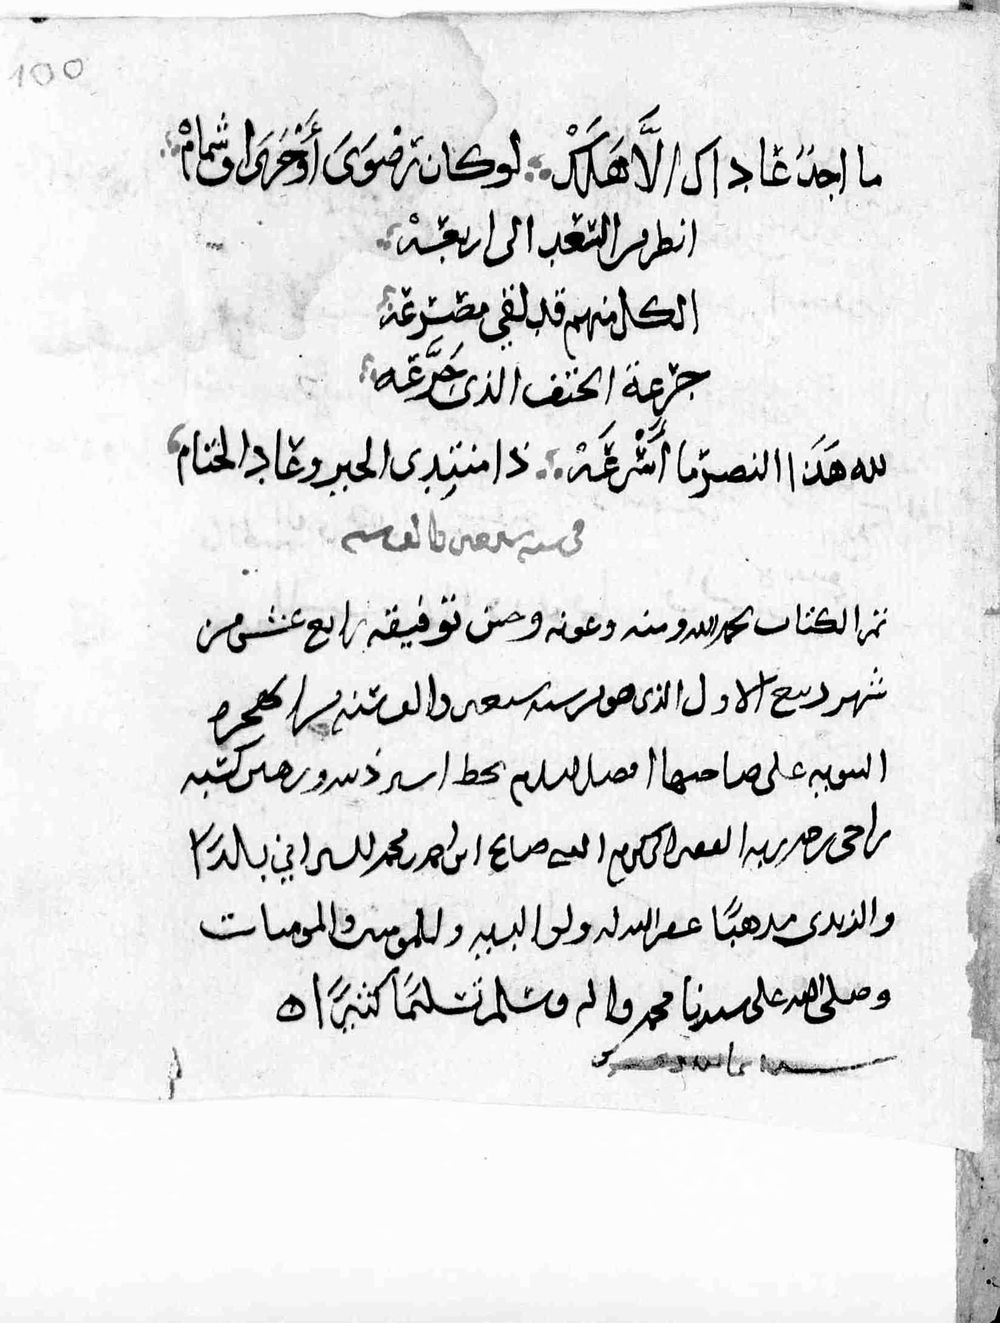 100
ما احد عاداك الا هلك لو كان رضوى أو حرا او شمام
انظر من التعب الى اربعة
الكل منهم قد لقي مصرعه
جرعة الحتف الذي جرعه
لله هذا النصر ما أسرعه ذا مبتدى الخبر وعاد الختام
في سنه سبعين والف سنه
تم الكتاب بحمد الله ومنه وعونه وحسن توفيقه رابع عشر من
شهر ربيع الاول الذي هو من سنه سبعين والف سنه من الهجره
النبويه على صاحبها افضل السلام بخط اسير ذنبه ورهين كتبه
راجي رحمة ربه الفقير الى الكريم صالح ابن احمد محمد بلدا
والزيدي مذهبا غفر الله له ولوالديه وللمومنين والمومنات
وصلى الله على سيدنا محمد واله وسلم تسليما كثيرا